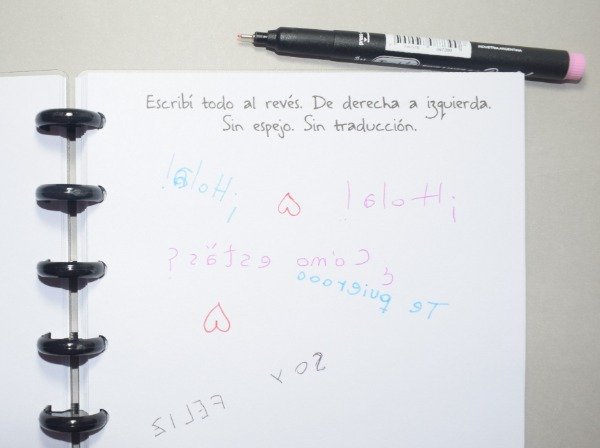 Escribí todo al revés. De derecha a izquierda.
Sin espejo. Sin traducción.
¡Hola! ¡Hola!
¿Cómo estás?
Te quierooo
SOY
FELIZ
INDUSTRIA ARGENTINA